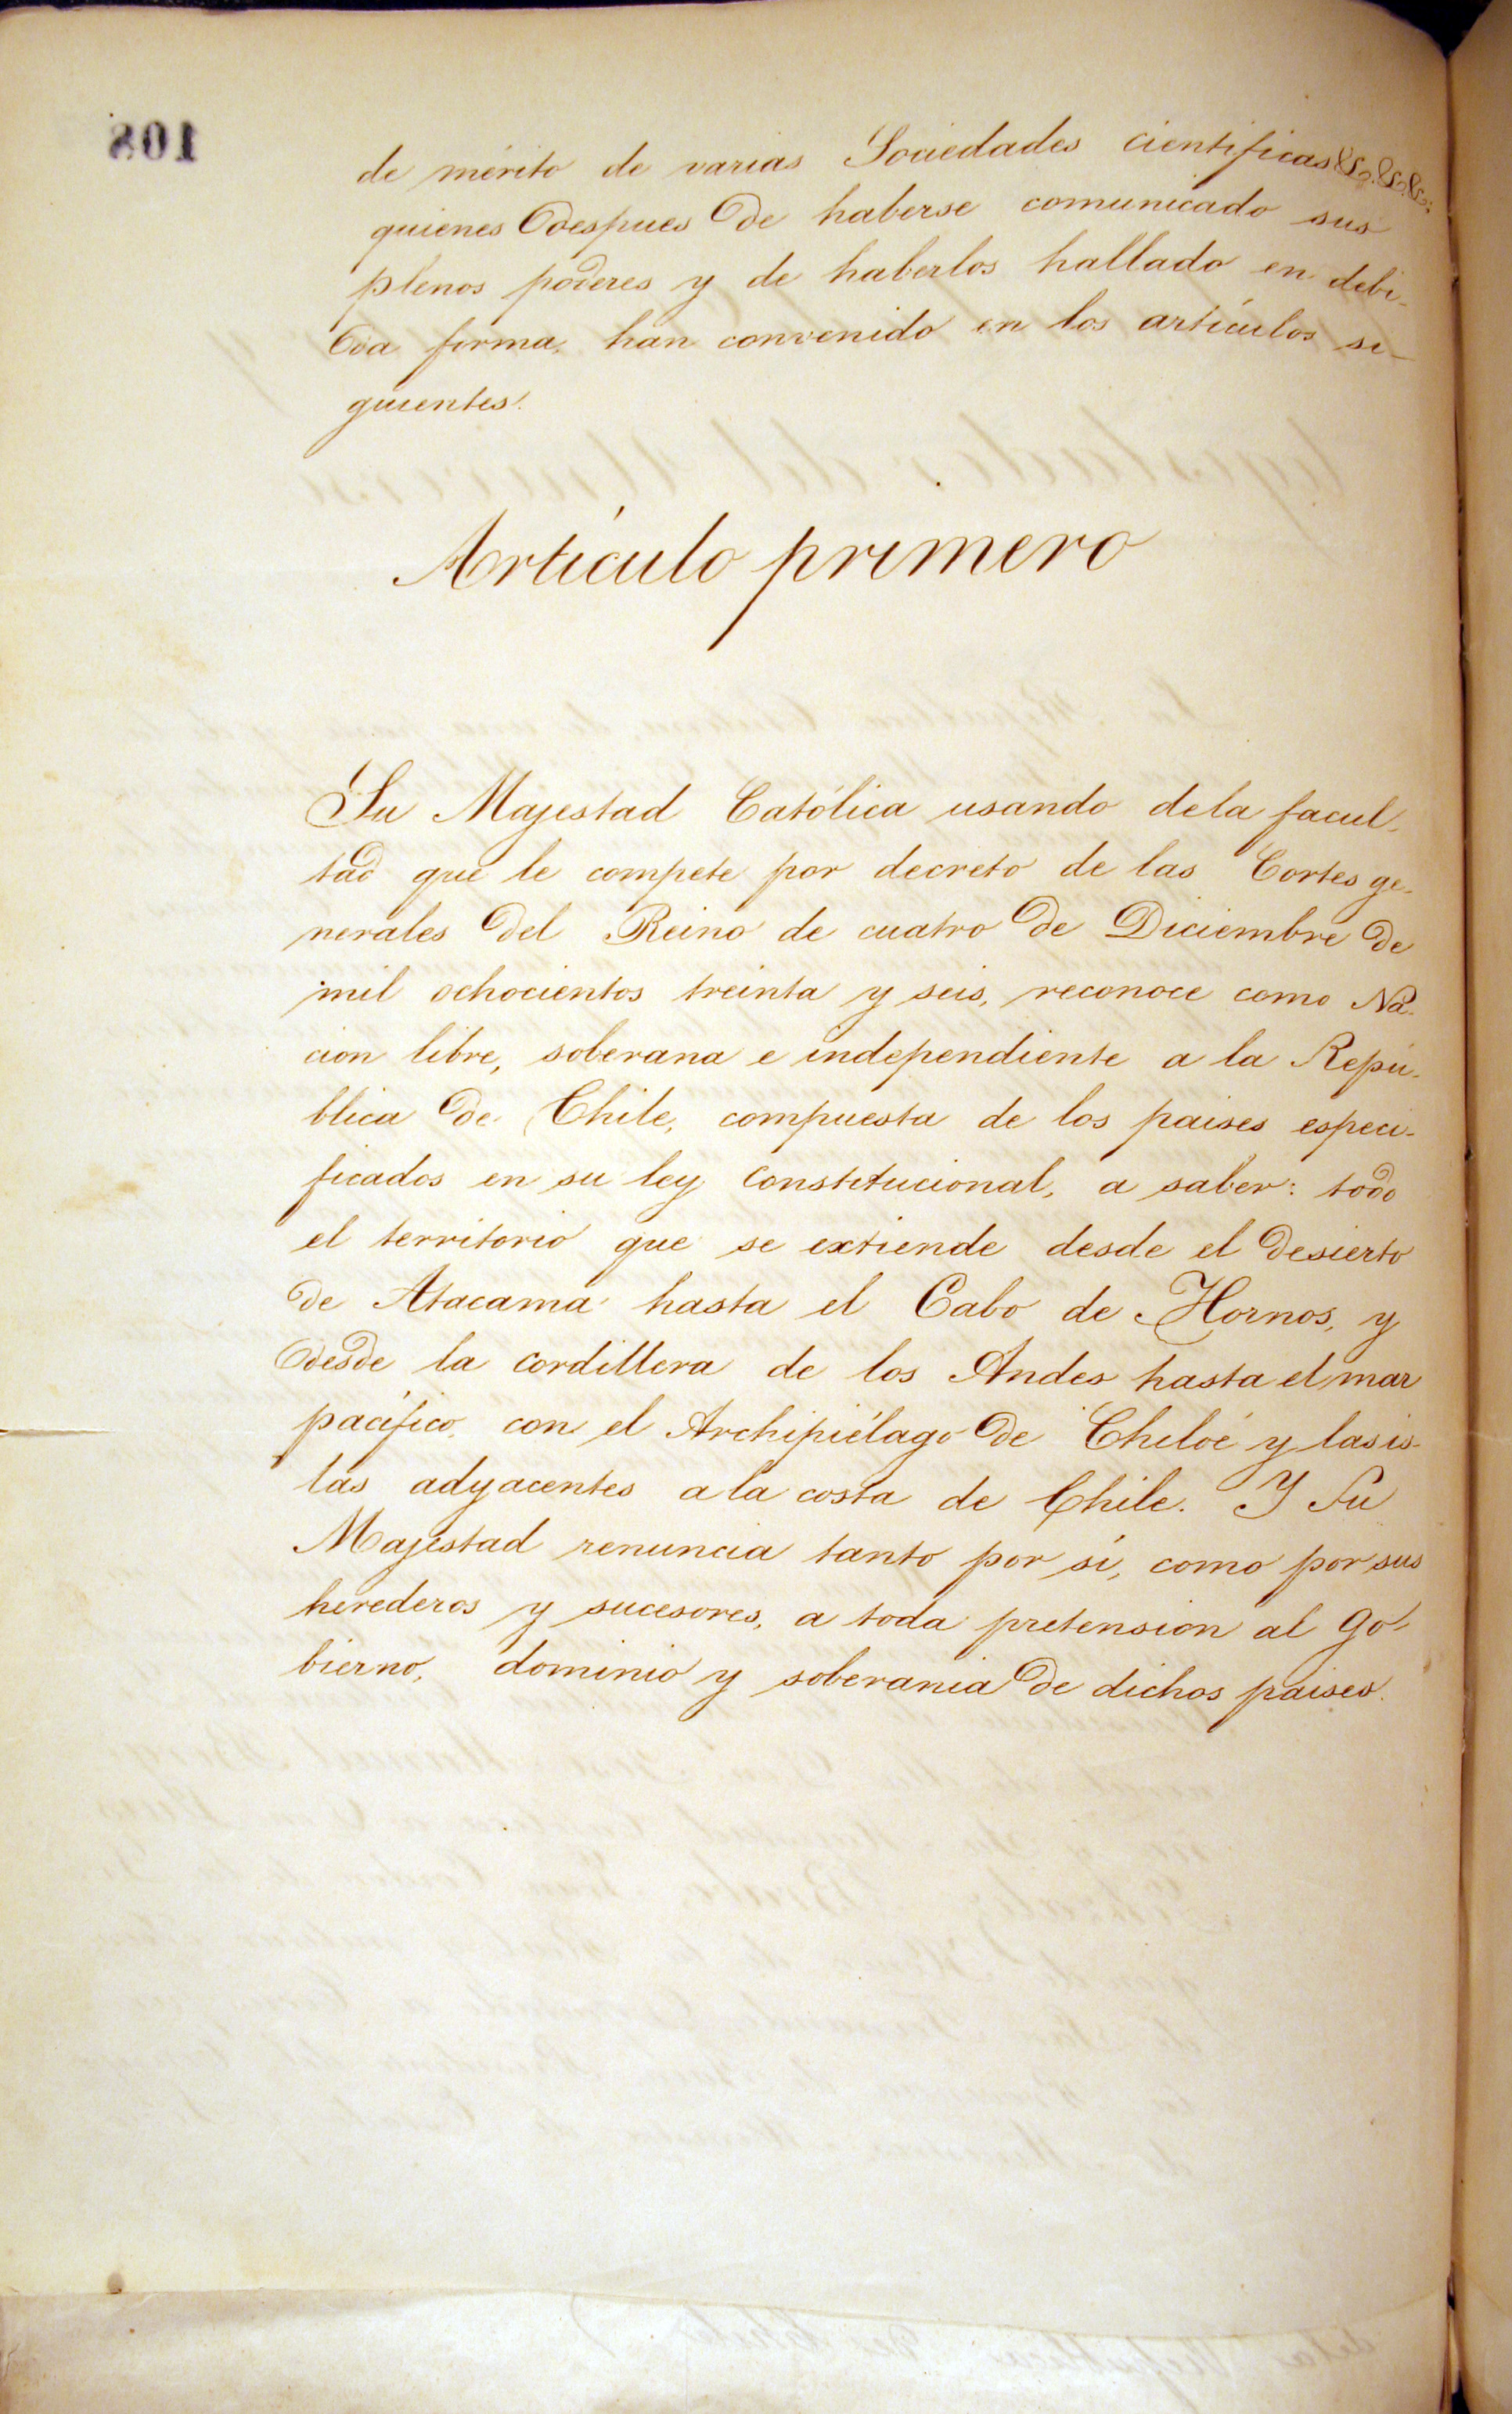 108
de mérito de varias Sociedades cientificas &a. &a. &a.
quienes despues de haberse comunicado sus
plenos poderes y de haberlos hallado en debi-
da forma, han convenido en los artículos si-
guientes.
Artículo primero
Su Majestad Católica usando dela facul-
tad que le compete por decreto de las Cortes ge-
nerales del Reino de cuatro de Diciembre de
mil ochocientos treinta y seis, reconoce como Na-
cion libre, soberana e independiente a la Repú-
blica de Chile, compuesta de los paises especi-
ficados en su ley constitucional, a saber: todo
el territorio que se extiende desde el desierto
de Atacama hasta el Cabo de Hornos, y
desde la cordillera de los Andes hasta el mar
pacífico, con el Archipiélago de Chiloé y las is-
las adyacentes a la costa de Chile. Y Su
Majestad renuncia tanto por sí, como por sus
herederos y sucesores, a toda pretension al Go-
bierno, dominio y soberania de dichos paises.